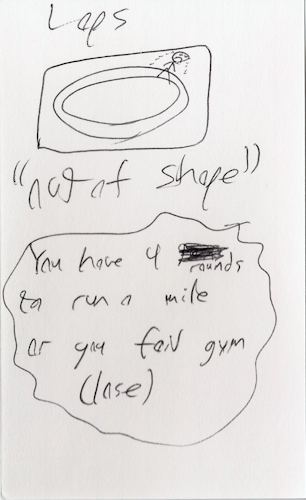 Laps
"out of shape"
You have 4 rounds
to run a mile
or you fail gym
(lose)